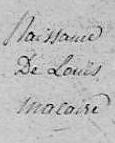 Naissance
De Louis
macaire